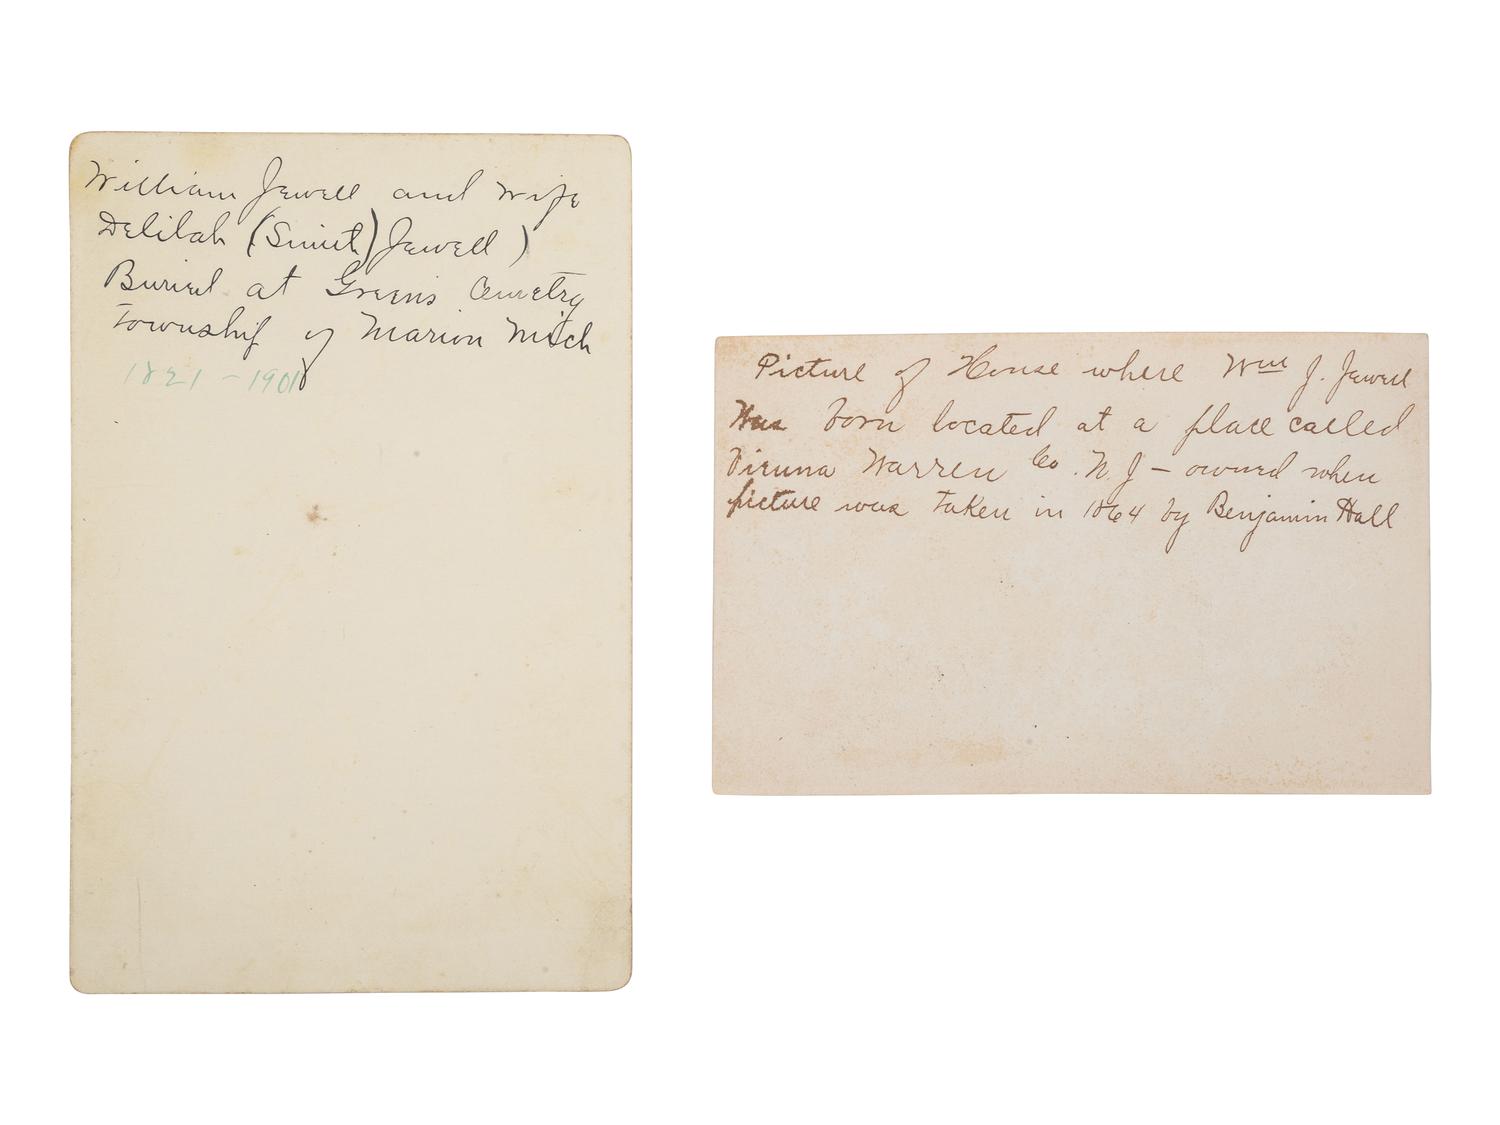 William Jewell and Wife
Delilah (Smith) Jewell)
Buried at Greens Cemetry
Township of Marion Mich
1821 - 1901
Picture of House where Wm J. Jewell
Was born located at a place called
Vienna Warren Co. N.J - owned when
picture was taken in 1864 by Benjamin Hall